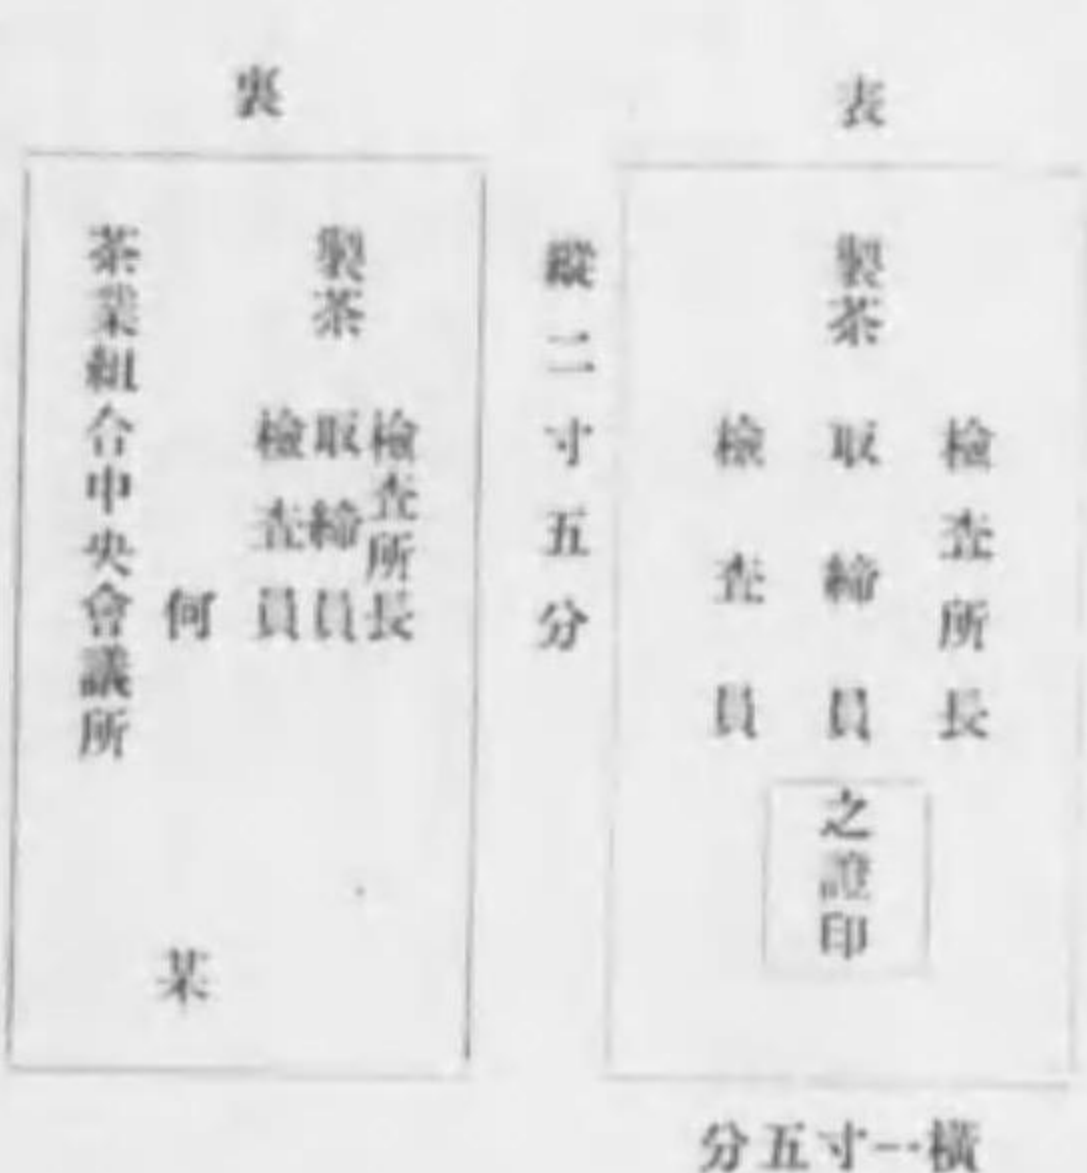 表
製茶
檢査所長
取締員
檢査員
之證印
横一寸五分
縱二寸五分
裏
製茶
檢査所長
取締員
檢査員
何某
茶業組合中央會議所